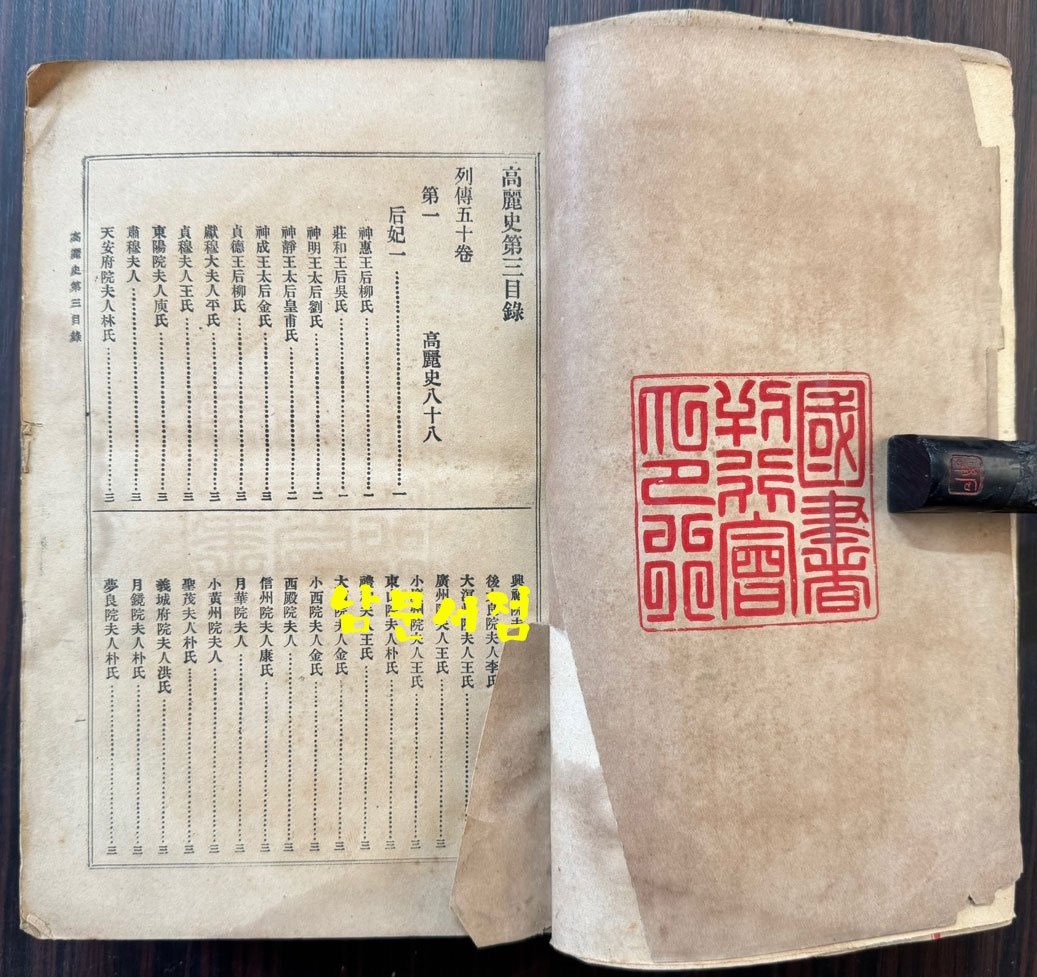 國書
刊行會
高麗史第三目錄
列傳五十卷
第一 高麗史八十八
后妃一 一
神惠王后柳氏 一
莊和王后吳氏 一
神明王太后劉氏 二
神靜王太后皇甫氏 二
神成王太后金氏 三
貞德王后柳氏 三
獻穆大夫人平氏 三
貞穆夫人王氏 三
東陽院夫人庾氏 三
肅穆夫人 三
天安府院夫人林氏 三
後 院夫人李氏
大溟 院夫人王氏
廣州 夫人王氏 三
小 州院夫人王氏 三
東 院夫人朴氏 三
夫 王氏 三
大 院夫人金氏 三
小西院夫人金氏 三
西殿院夫人 三
信州院夫人康氏 三
月華院夫人 三
小黃州院夫人 三
聖茂夫人朴氏 三
義城府院夫人洪氏 三
月鏡院夫人朴氏 三
夢良院夫人朴氏 三
高麗史第三目錄
一
남문서점